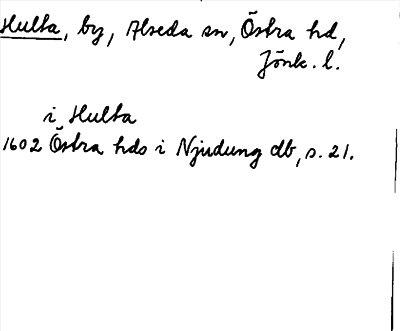 Hulta, by, Alseda sn, Östra hd,
Jönk. l.
i Hulta
1602 Östra hds i Njudung db, s. 21.